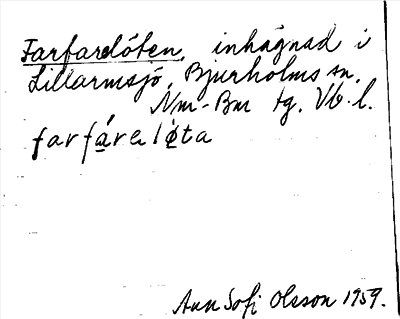 Farfarelóten, inhägnad i
Lillarmsjö, Bjurholms sn.
Nm-Bm tg. Vb. l.
farfárelo̜ta
Ann Sofi Olsson 1959.